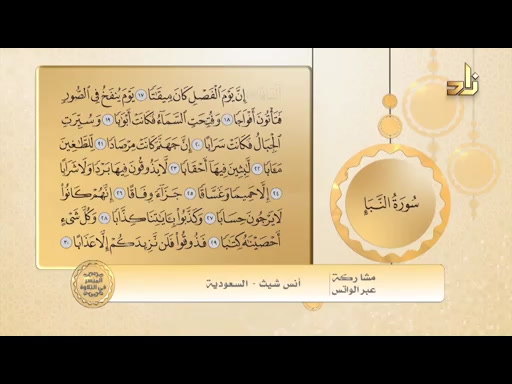 زاد
إِنَّ يَوْمَ ٱلْفَصْلِ كَانَ مِيقَٰتًا ١٧ يَوْمَ يُنفَخُ فِي ٱلصُّورِ
فَتَأْتُونَ أَفْوَاجًا ١٨ وَفُتِحَتِ ٱلسَّمَآءُ فَكَانَتْ أَبْوَٰبًا ١٩ وَسُيِّرَتِ
ٱلْجِبَالُ فَكَانَتْ سَرَابًا ٢٠ إِنَّ جَهَنَّمَ كَانَتْ مِرْصَادًا ٢١ لِّلطَّٰغِينَ
مَـَٔابًا ٢٢ لَّٰبِثِينَ فِيهَآ أَحْقَابًا ٢٣ لَّا يَذُوقُونَ فِيهَا بَرْدًا وَلَا شَرَابًا
٢٤ إِلَّا حَمِيمًا وَغَسَّاقًا ٢٥ جَزَآءً وِفَاقًا ٢٦ إِنَّهُمْ كَانُوا۟
لَا يَرْجُونَ حِسَابًا ٢٧ وَكَذَّبُوا۟ بِـَٔايَٰتِنَا كِذَّابًا ٢٨ وَكُلَّ شَىْءٍ
أَحْصَيْنَٰهُ كِتَٰبًا ٢٩ فَذُوقُوا۟ فَلَن نَّزِيدَكُمْ إِلَّا عَذَابًا ٣٠
سُورَةُ النَّبَإِ
مشاركة
عبر الواتس
أنس شيث - السعودية
الميسر
في التلاوة